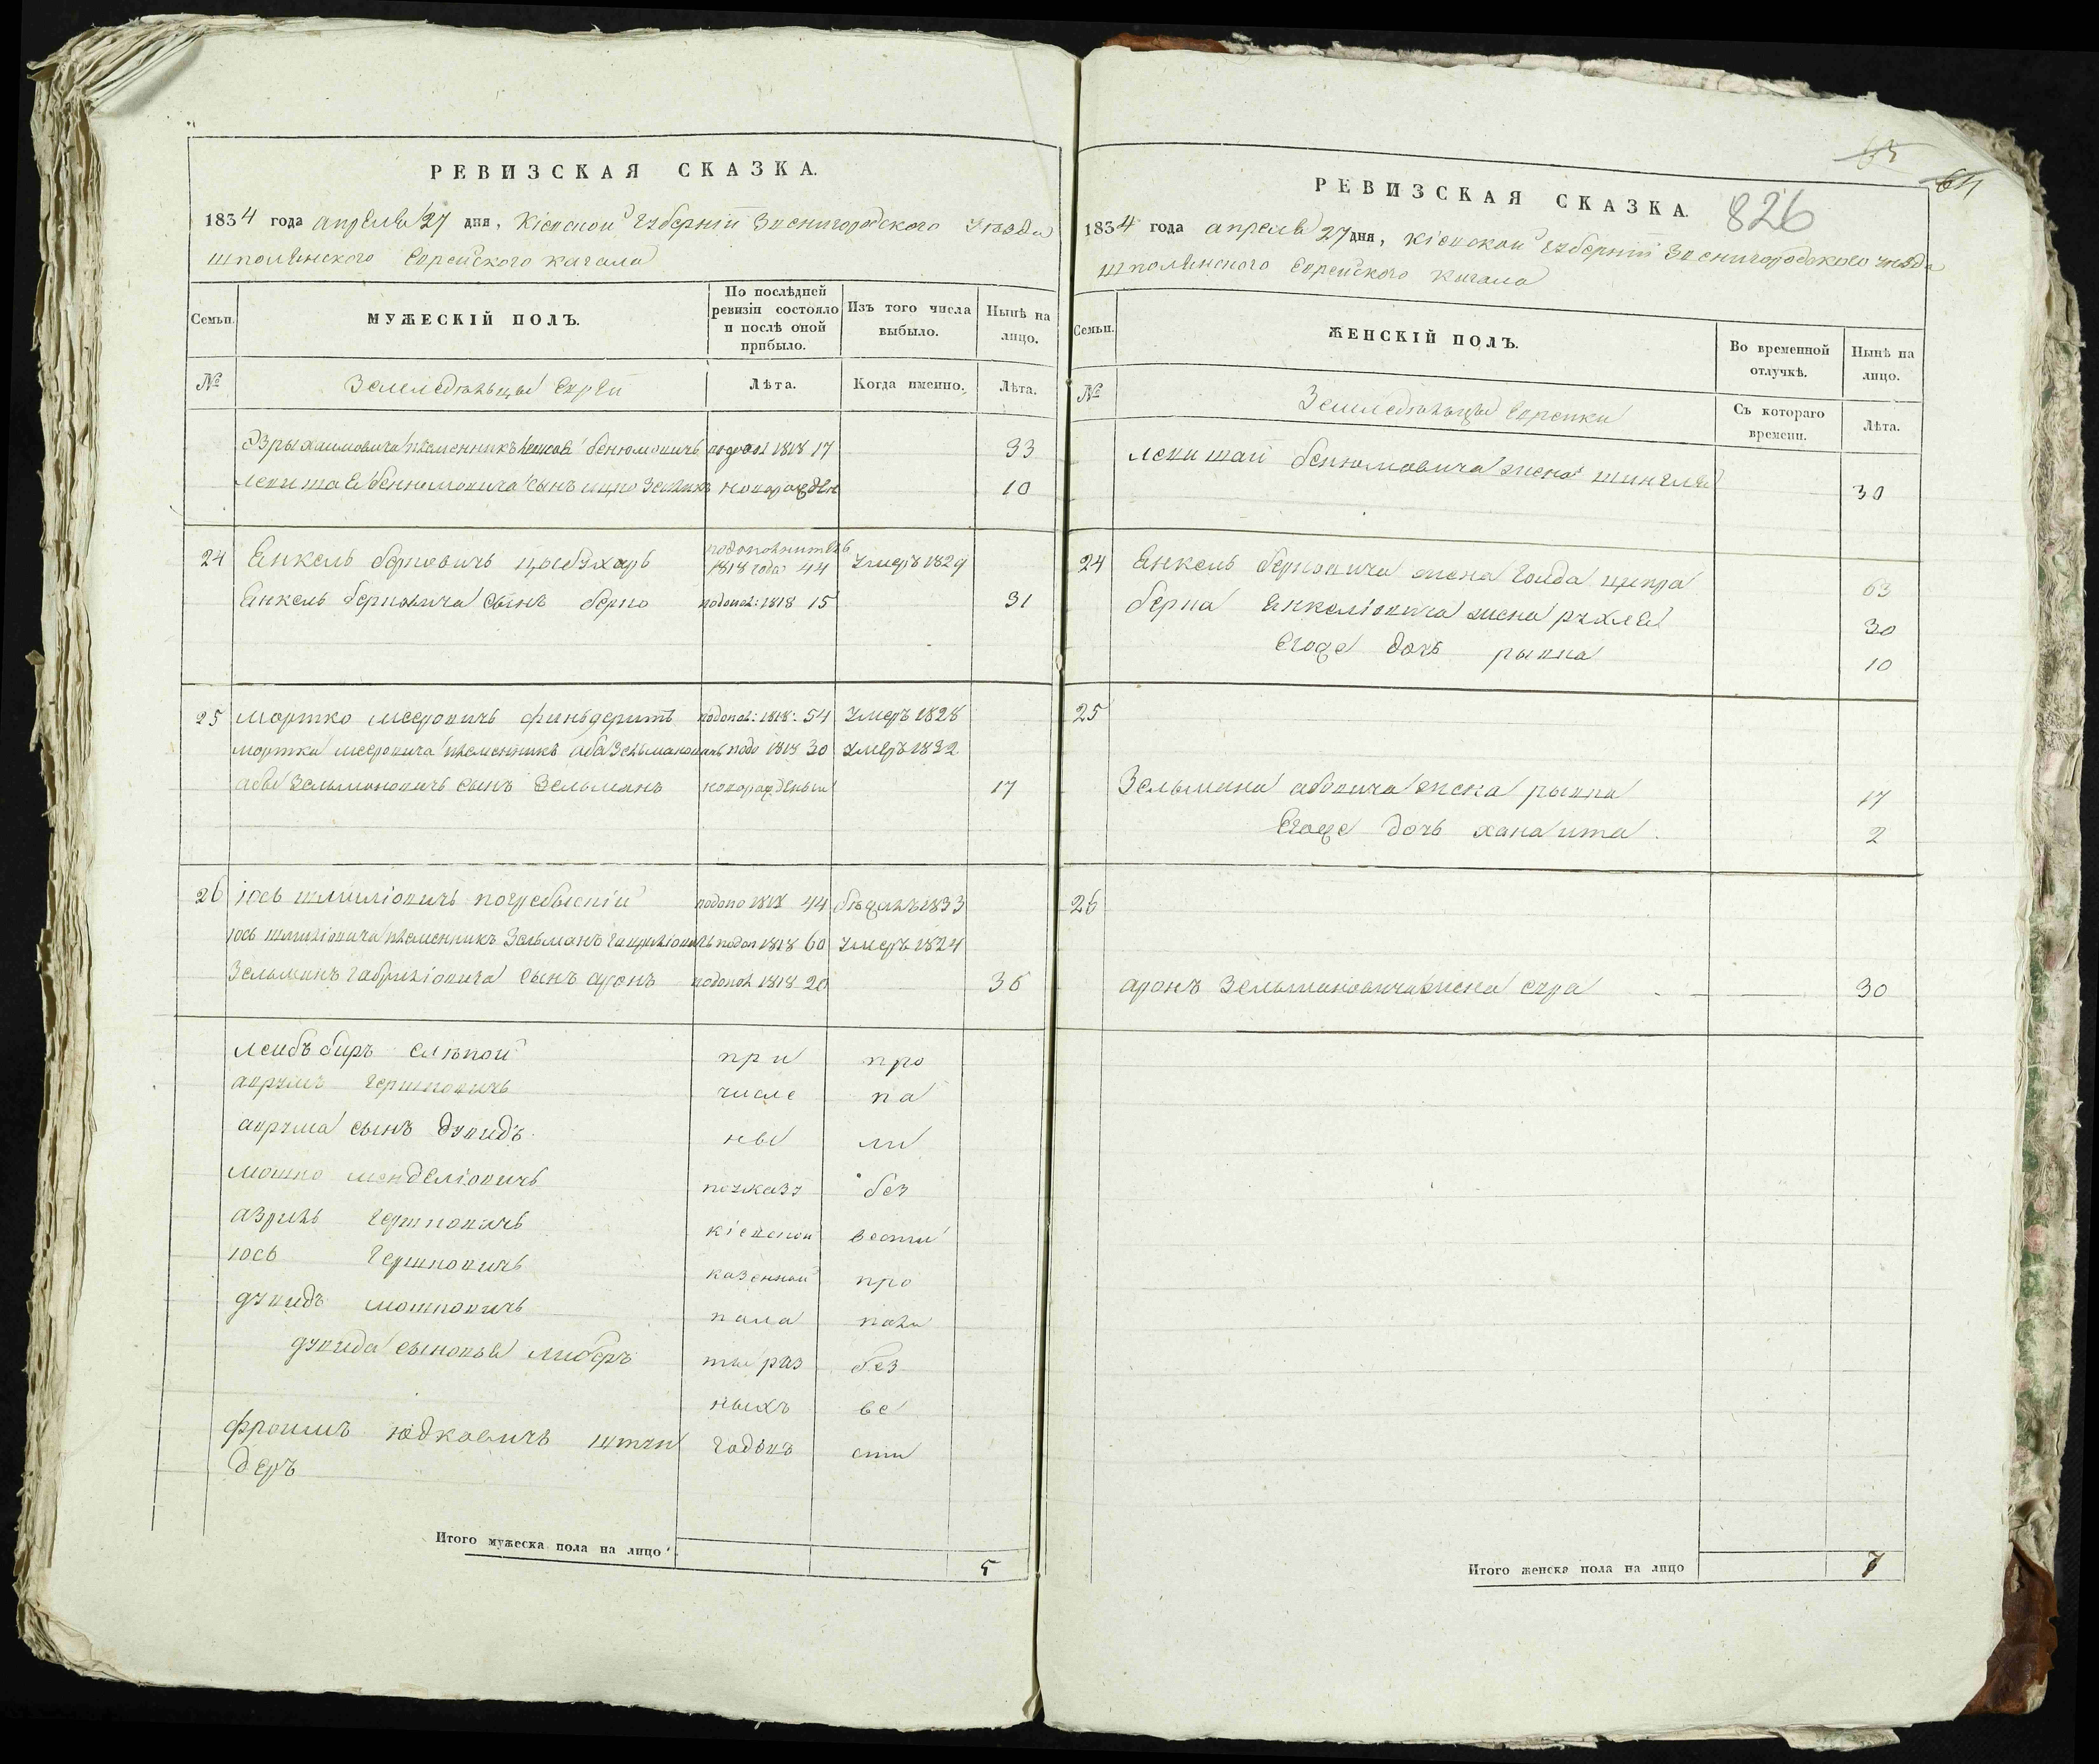 РЕВИЗСКАЯ СКАЗКА.
1834 года апреля 27 дня, Кіевской Губерніи Звенигородского Уезда
шполянского Еврейского кагала
Семьи.
МУЖЕСКІЙ ПОЛЪ.
По послѣдней ревизіи состояло и послѣ оной прибыло.
Изъ того числа выбыло.
Нынѣ на лицо.
№
Земледельцы Евреи
Лѣта.
Когда именно.
Лѣта.
Эзры хаимовича племенникъ бенюмовичъ 1818 17 33
бенюмовича сынъ новорожден 10
24 Янкель берковичъ цыбухаръ подополнители 1818 года 44 умеръ 1829
Янкеля берковича сынъ берко подопол: 1818 15 31
25 мортко мееровичъ финьдеритъ подопол: 1818: 54 умеръ 1828
мортка мееровича племенникъ аба Зельмановичъ подо 1818 30 умеръ 1832
абы Зельмановичъ сынъ Зельманъ новорожденый 17
26 іось шмиліовичъ погребыскій подопо 1818 44 бѣжалъ 1833
іось шмиліовича племенникъ Зельманъ гавриліовичъ подоп 1818 60 умеръ 1824
Зельманъ габриліовича сынъ аронъ подопол 1818 20 36
леибъ биръ слѣпой при про
аврумъ гершковичъ числе па
аврума сынъ дувидъ ны ли
мошко менделіовичъ поуказу без
азриль гершковичъ кіевской вести
іось гершковичъ казенной про
дувидъ мошковичъ пала пали
дувида сыновья либеръ ты раз без
ныхъ ве
фроимъ юдковичъ годовъ сти
деръ
Итого мужеска пола на лицо 5
65
64
826
РЕВИЗСКАЯ СКАЗКА.
1834 года апреля 27 дня, Кіевской Губерніи Звенигородского уезда
шполянского Еврейского Кагала
Семьи.
ЖЕНСКІЙ ПОЛЪ.
Во временной отлучкѣ.
Нынѣ на лицо.
№
Земледельцы Еврейки
Съ котораго времени.
Лѣта.
бенюмовича жена 30
24 Янкель берковича жена голда цивра 63
берка Янкеліовича жена рухля 30
Егоже дочь рывка 10
25
Зельмана абовича жена рывка 17
Егоже дочь хана ита 2
26
аронъ Зельмановича жена сура 30
Итого женска пола на лицо 7